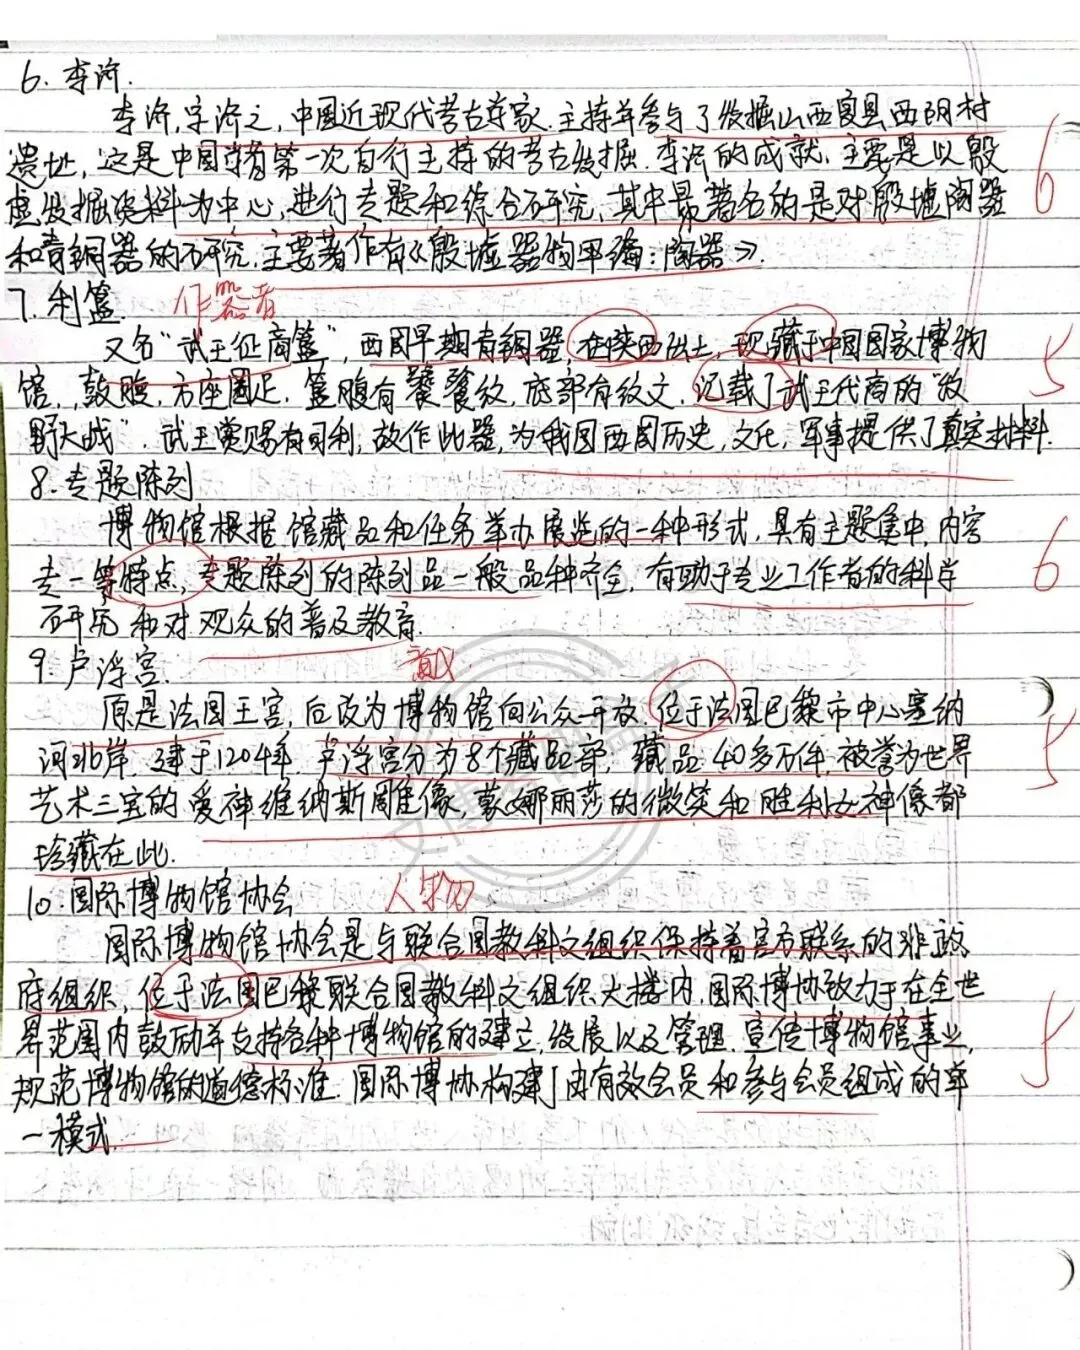 6. 李济.
李济,字济之,中国近现代考古学家.主持并参与了发掘山西夏县西阴村
遗址,这是中国学者第一次自行主持的考古发掘.李济的成就.主要是以殷
虚发掘资料为中心,进行专题和综合研究,其中最著名的是对殷墟陶器
和青铜器的研究.主要著作有《殷墟器物甲编:陶器》.
7. 利簋. 作器者
又名“武王征商簋”,西周早期青铜器,在陕西出土,现藏于中国国家博物
馆,鼓腹,方座圈足.簋腹有饕餮纹,底部有纹文.记载了武王伐商的“牧
野大战”.武王赏赐有司利,故作此器,为我国西周历史,文化,军事提供了真实材料.
8.专题陈列
博物馆根据馆藏品和任务举办展览的一种形式,具有主题集中,内容
专一等特点,专题陈列的陈列品一般品种齐全,有助于专业工作者的科学
研究和对观众的普及教育.
9.卢浮宫.
原是法国王宫,后改为博物馆向公众开放.位于法国巴黎市中心塞纳
河北岸.建于1204年.卢浮宫分为8个藏品部,藏品40多万件,被誉为世界
艺术三宝的爱神维纳斯雕像,蒙娜丽莎的微笑和胜利女神像都
珍藏在此.
10.国际博物馆协会 人物
国际博物馆协会是与联合国教科文组织保持着官方联系的非政
府组织,位于法国巴黎联合国教科文组织大楼内.国际博协致力于在全世
界范围内鼓励并支持各种博物馆的建立,发展以及管理.宣传博物馆事业,
规范博物馆的道德标准.国际博协构建了由有效会员和参与会员组成的单
一模式.
6
5
6
5
5